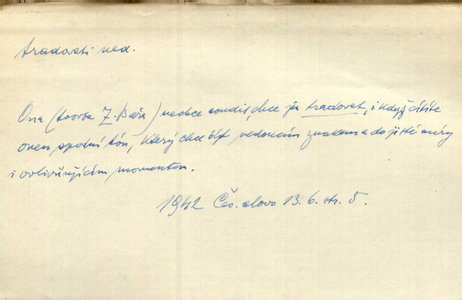 tradovati ned.
Ona (tvorba Z. Báře) nechce soudit, chce jen tradovat, i když cítíte
onen spodní tón, který chce být vedoucím znakem a do jisté míry
i ovlivňujícím momentem.
1942 Čes. slovo 13. 6. str. 5.